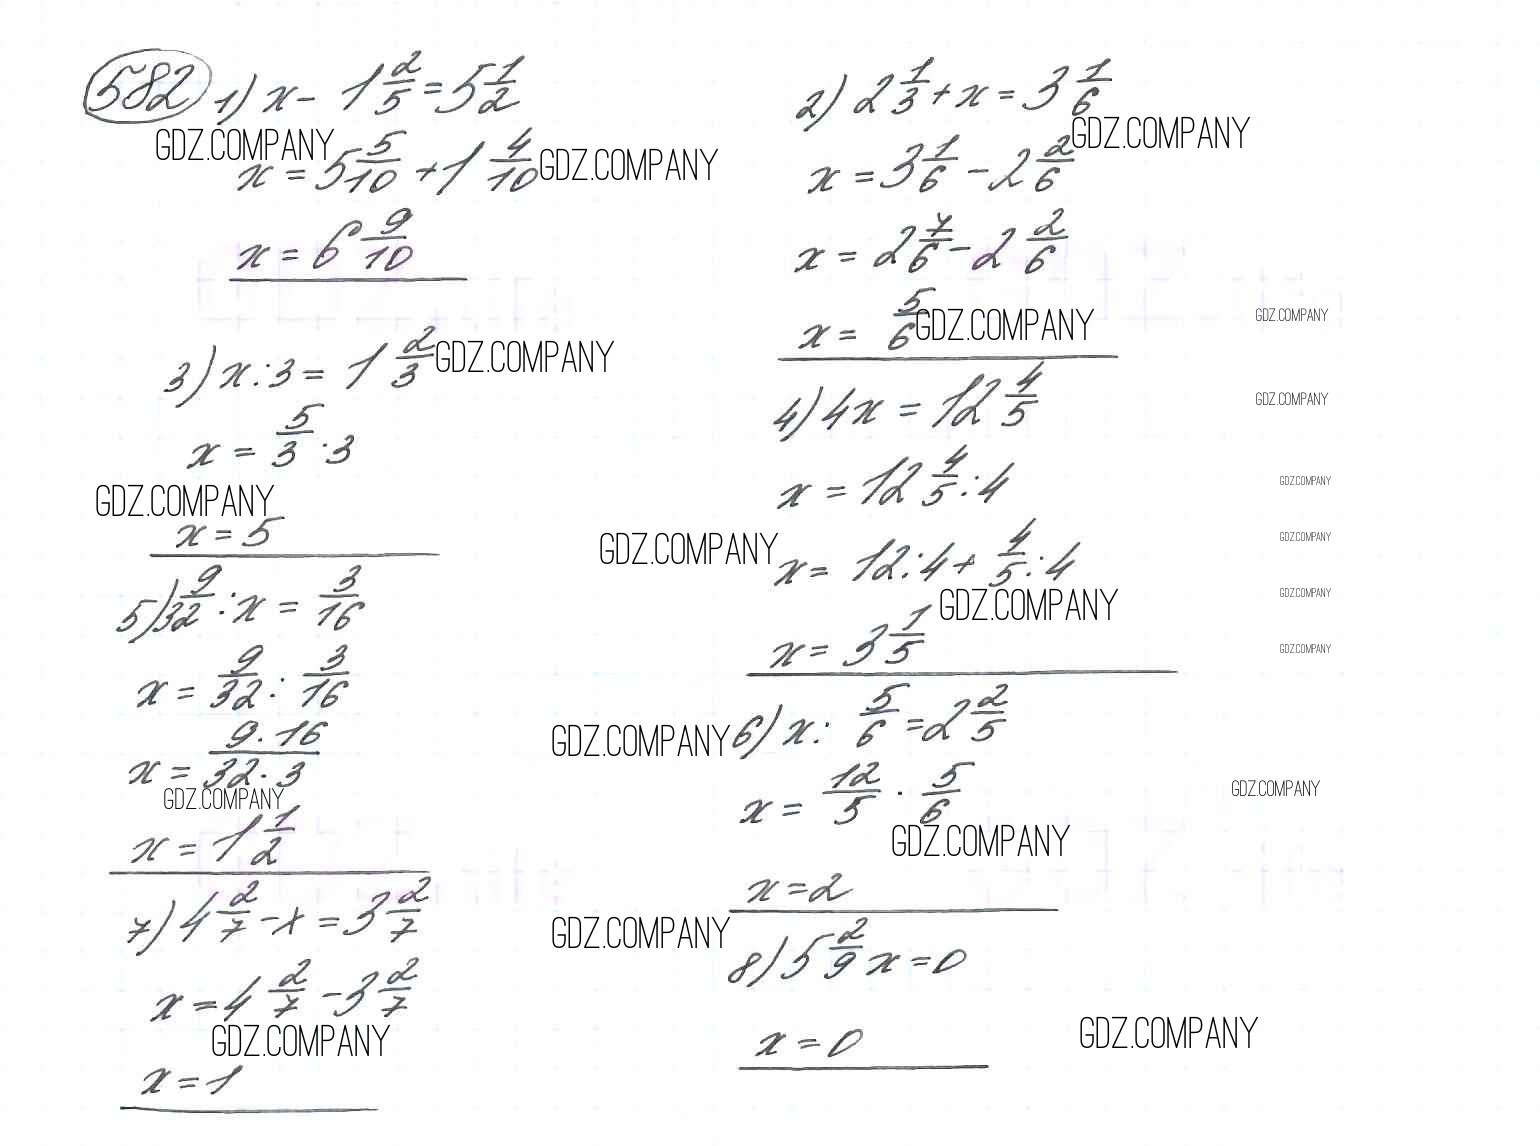 582 1) x - 1 2/5 = 5 1/2
GDZ.COMPANY
x = 5 5/10 + 1 4/10 GDZ.COMPANY
x = 6 9/10
2) 2 1/3 + x = 3 1/6
GDZ.COMPANY
x = 3 1/6 - 2 2/6
x = 2 7/6 - 2 2/6
x = 5/6 GDZ.COMPANY
GDZ.COMPANY
3) x : 3 = 1 2/3 GDZ.COMPANY
x = 5/3 · 3
GDZ.COMPANY
x = 5
4) 4x = 12 4/5
GDZ.COMPANY
x = 12 4/5 : 4
GDZ.COMPANY
GDZ.COMPANY
x = 12 : 4 + 4/5 : 4
GDZ.COMPANY
GDZ.COMPANY
GDZ.COMPANY
x = 3 1/5
GDZ.COMPANY
5) 9/32 : x = 3/16
x = 9/32 : 3/16
x = 9·16/32·3
GDZ.COMPANY
x = 1 1/2
GDZ.COMPANY
6) x : 5/6 = 2 2/5
x = 12/5 · 5/6
GDZ.COMPANY
GDZ.COMPANY
x = 2
7) 4 2/7 - x = 3 2/7
x = 4 2/7 - 3 2/7
GDZ.COMPANY
x = 1
GDZ.COMPANY
8) 5 2/9 x = 0
x = 0
GDZ.COMPANY